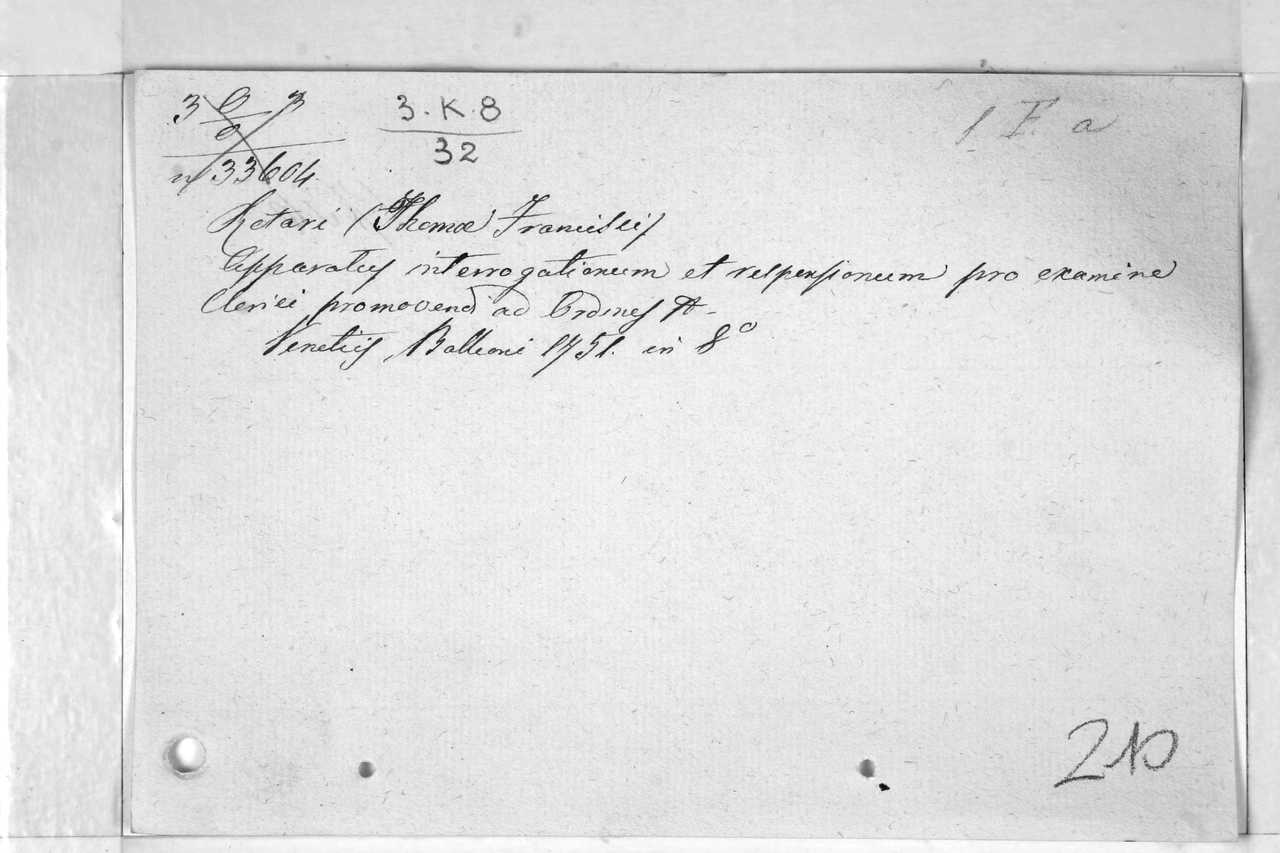 3 O 3
n 33604
3.K.8
32
1 F. a
Rotari (Thomæ Francisci)
Apparatus interrogationum et responsionum pro examine
Clerici promovendi ad Ordines
Venetiis, Balleoni 1751. in 8º
210